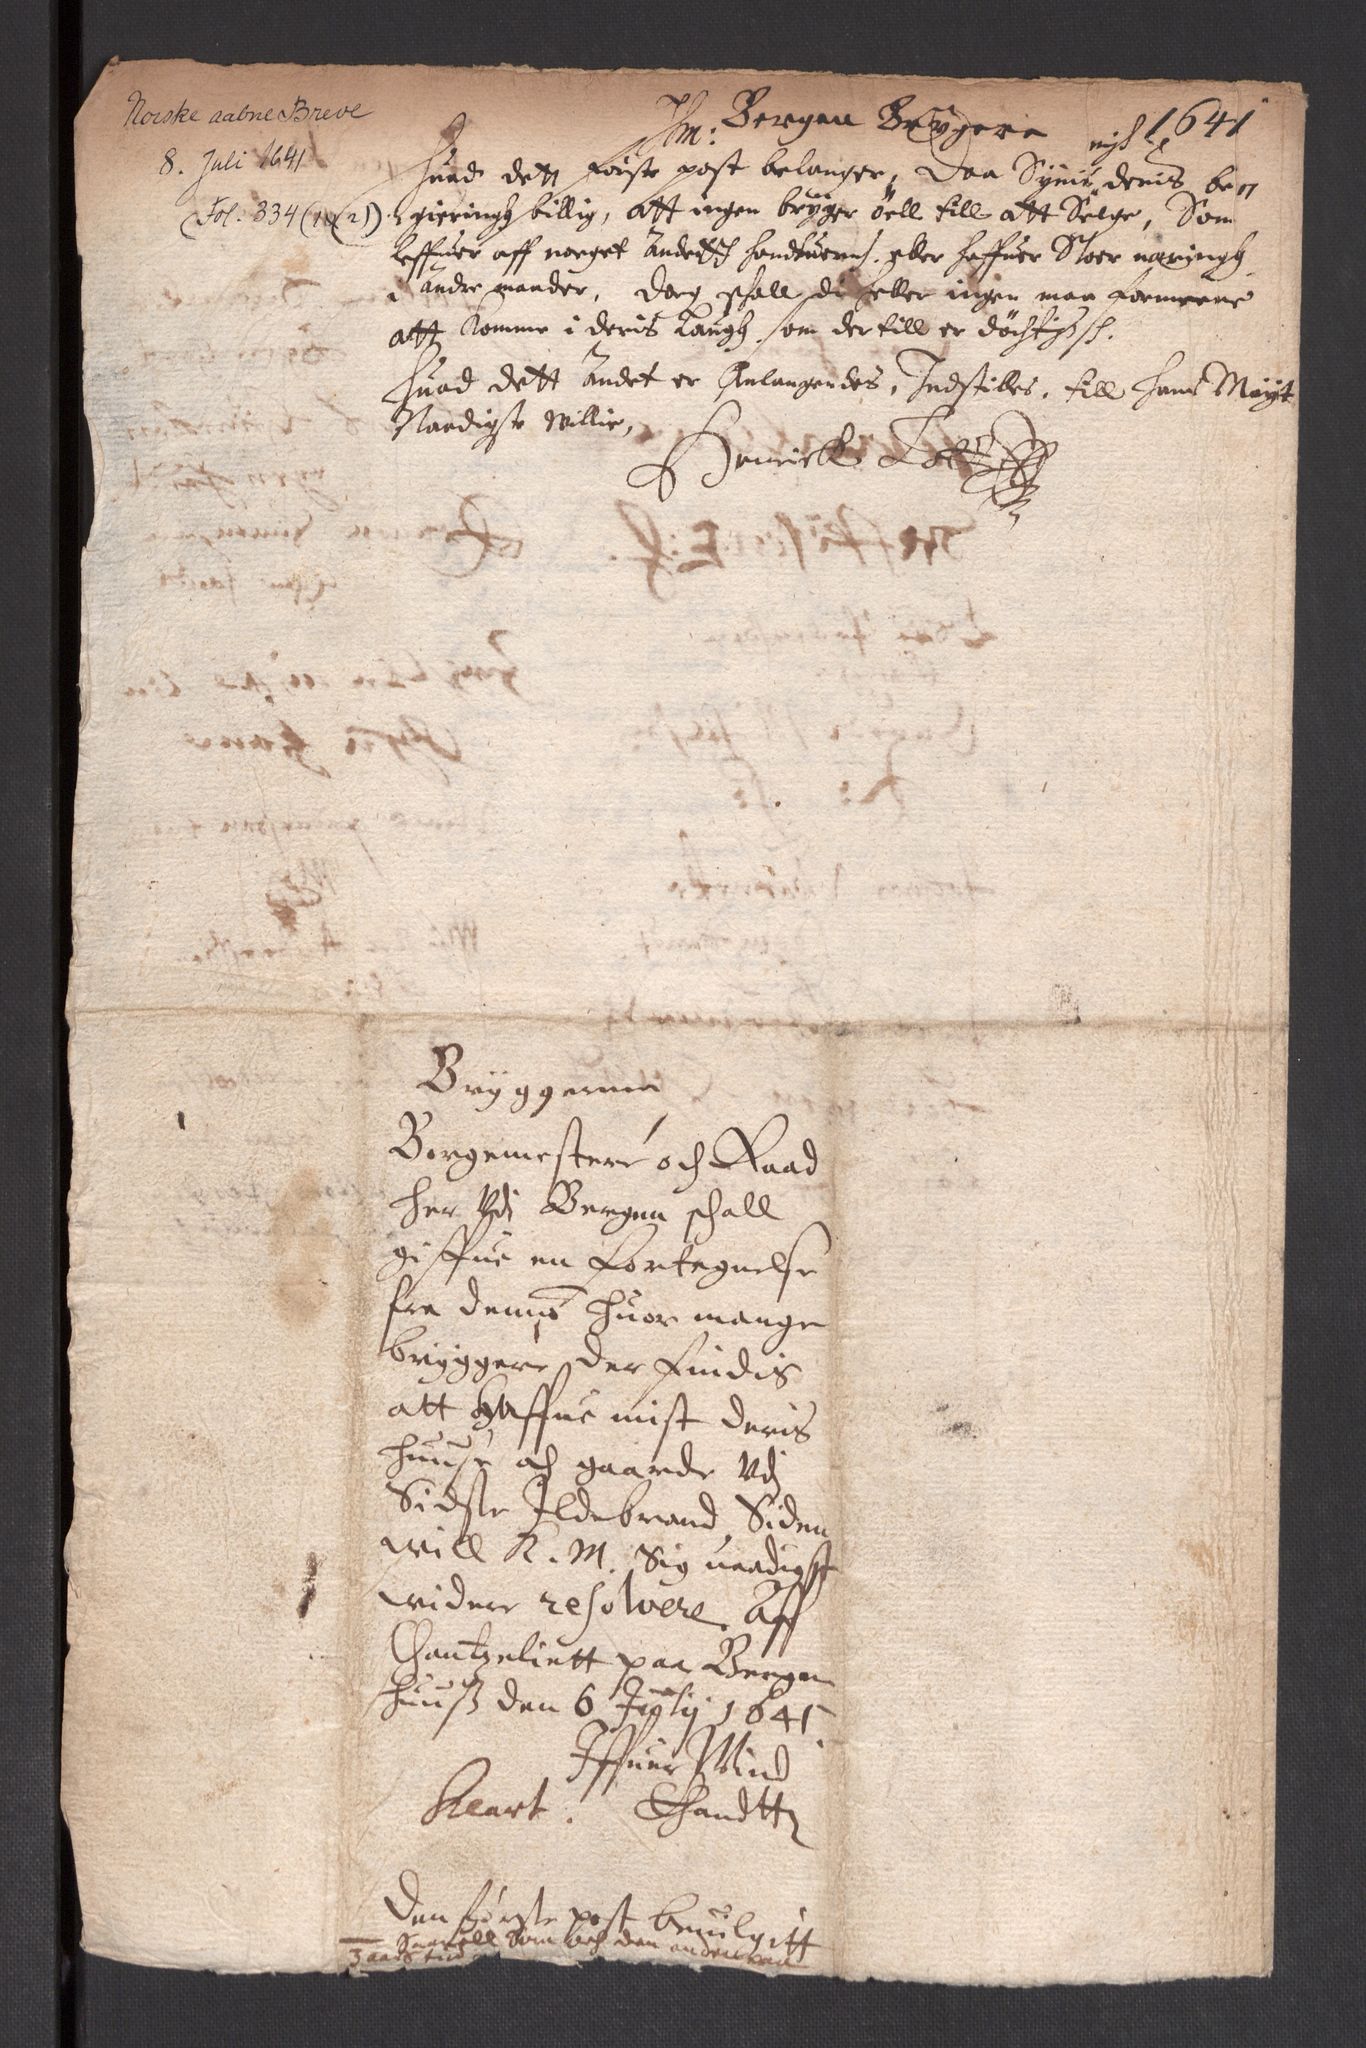 Norske aabne Breve
8. Juli 1641
(Fol. 334 (1) (2))
Jhm: Bergen Brygere 1641
Huad dett første post belanger, Daa Synis migh deris be-
gieringh billig, att ingen bryger öell till att Selge, Som
leffuer aff noeget andett handtuerch eller haffuer Stoer naringh
i andre maader, dog schall di heller ingen maa formeene
att komme i deris laugh som der till er döchtigh.
Huad dett andet er Anlangendes, Indstilles till Hans Mayt
Naadigste willie,
Henrick
Bryggerne
Borgemestere och Raad
her Udi Bergen schall
giffue en fortegnelse
fra dennem huor mange
bryggere der findis
att haffue mist deris
huuse och gaarde Udj
Sidste Ildebrand, Siden
will K. M. Sig naadigst
widere resolvere. Aff
Chantzeliett paa Bergen
huuß den 6 July 1641
Iffuer Wind
klart. Chandttz
Den første post beuilgitt
Saauell som och den anden paa
3 aars tid